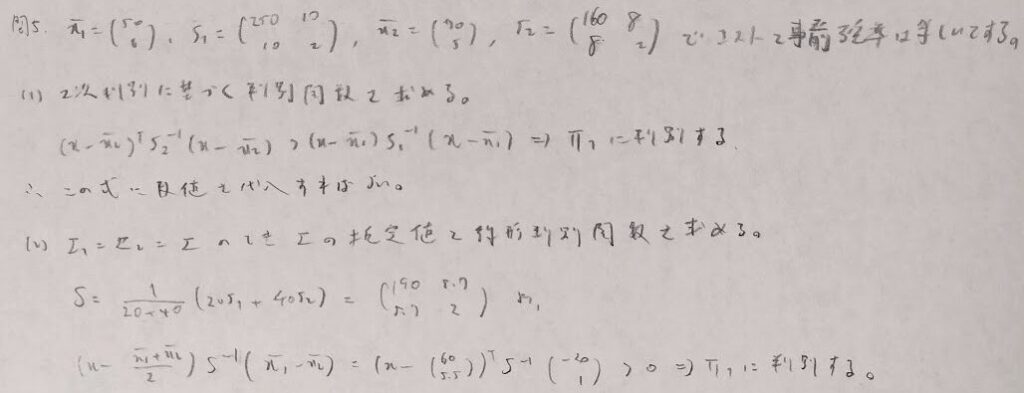 問5. x̄₁=(50 6), S₁=(250 10 10 2), x̄₂=(70 5), S₂=(160 8 8 2) で コストと事前確率は等しいとする。
(1) 2次判別に基づく判別関数を求める。
(x-x̄₂)ᵀS₂⁻¹(x-x̄₂) > (x-x̄₁)S₁⁻¹(x-x̄₁) ⇒ π₁に判別する.
∴ この式に数値を代入すればよい。
(2) Σ₁=Σ₂=Σ のとき Σの推定値と線形判別関数を求める。
S= 1/20+40 (20S₁+40S₂) = (190 8.7 8.7 2) より,
(x- x̄₁+x̄₂/2) S⁻¹(x̄₁-x̄₂) = (x-(60 5.5))ᵀS⁻¹(-20 1) > 0 ⇒ π₁に判別する。